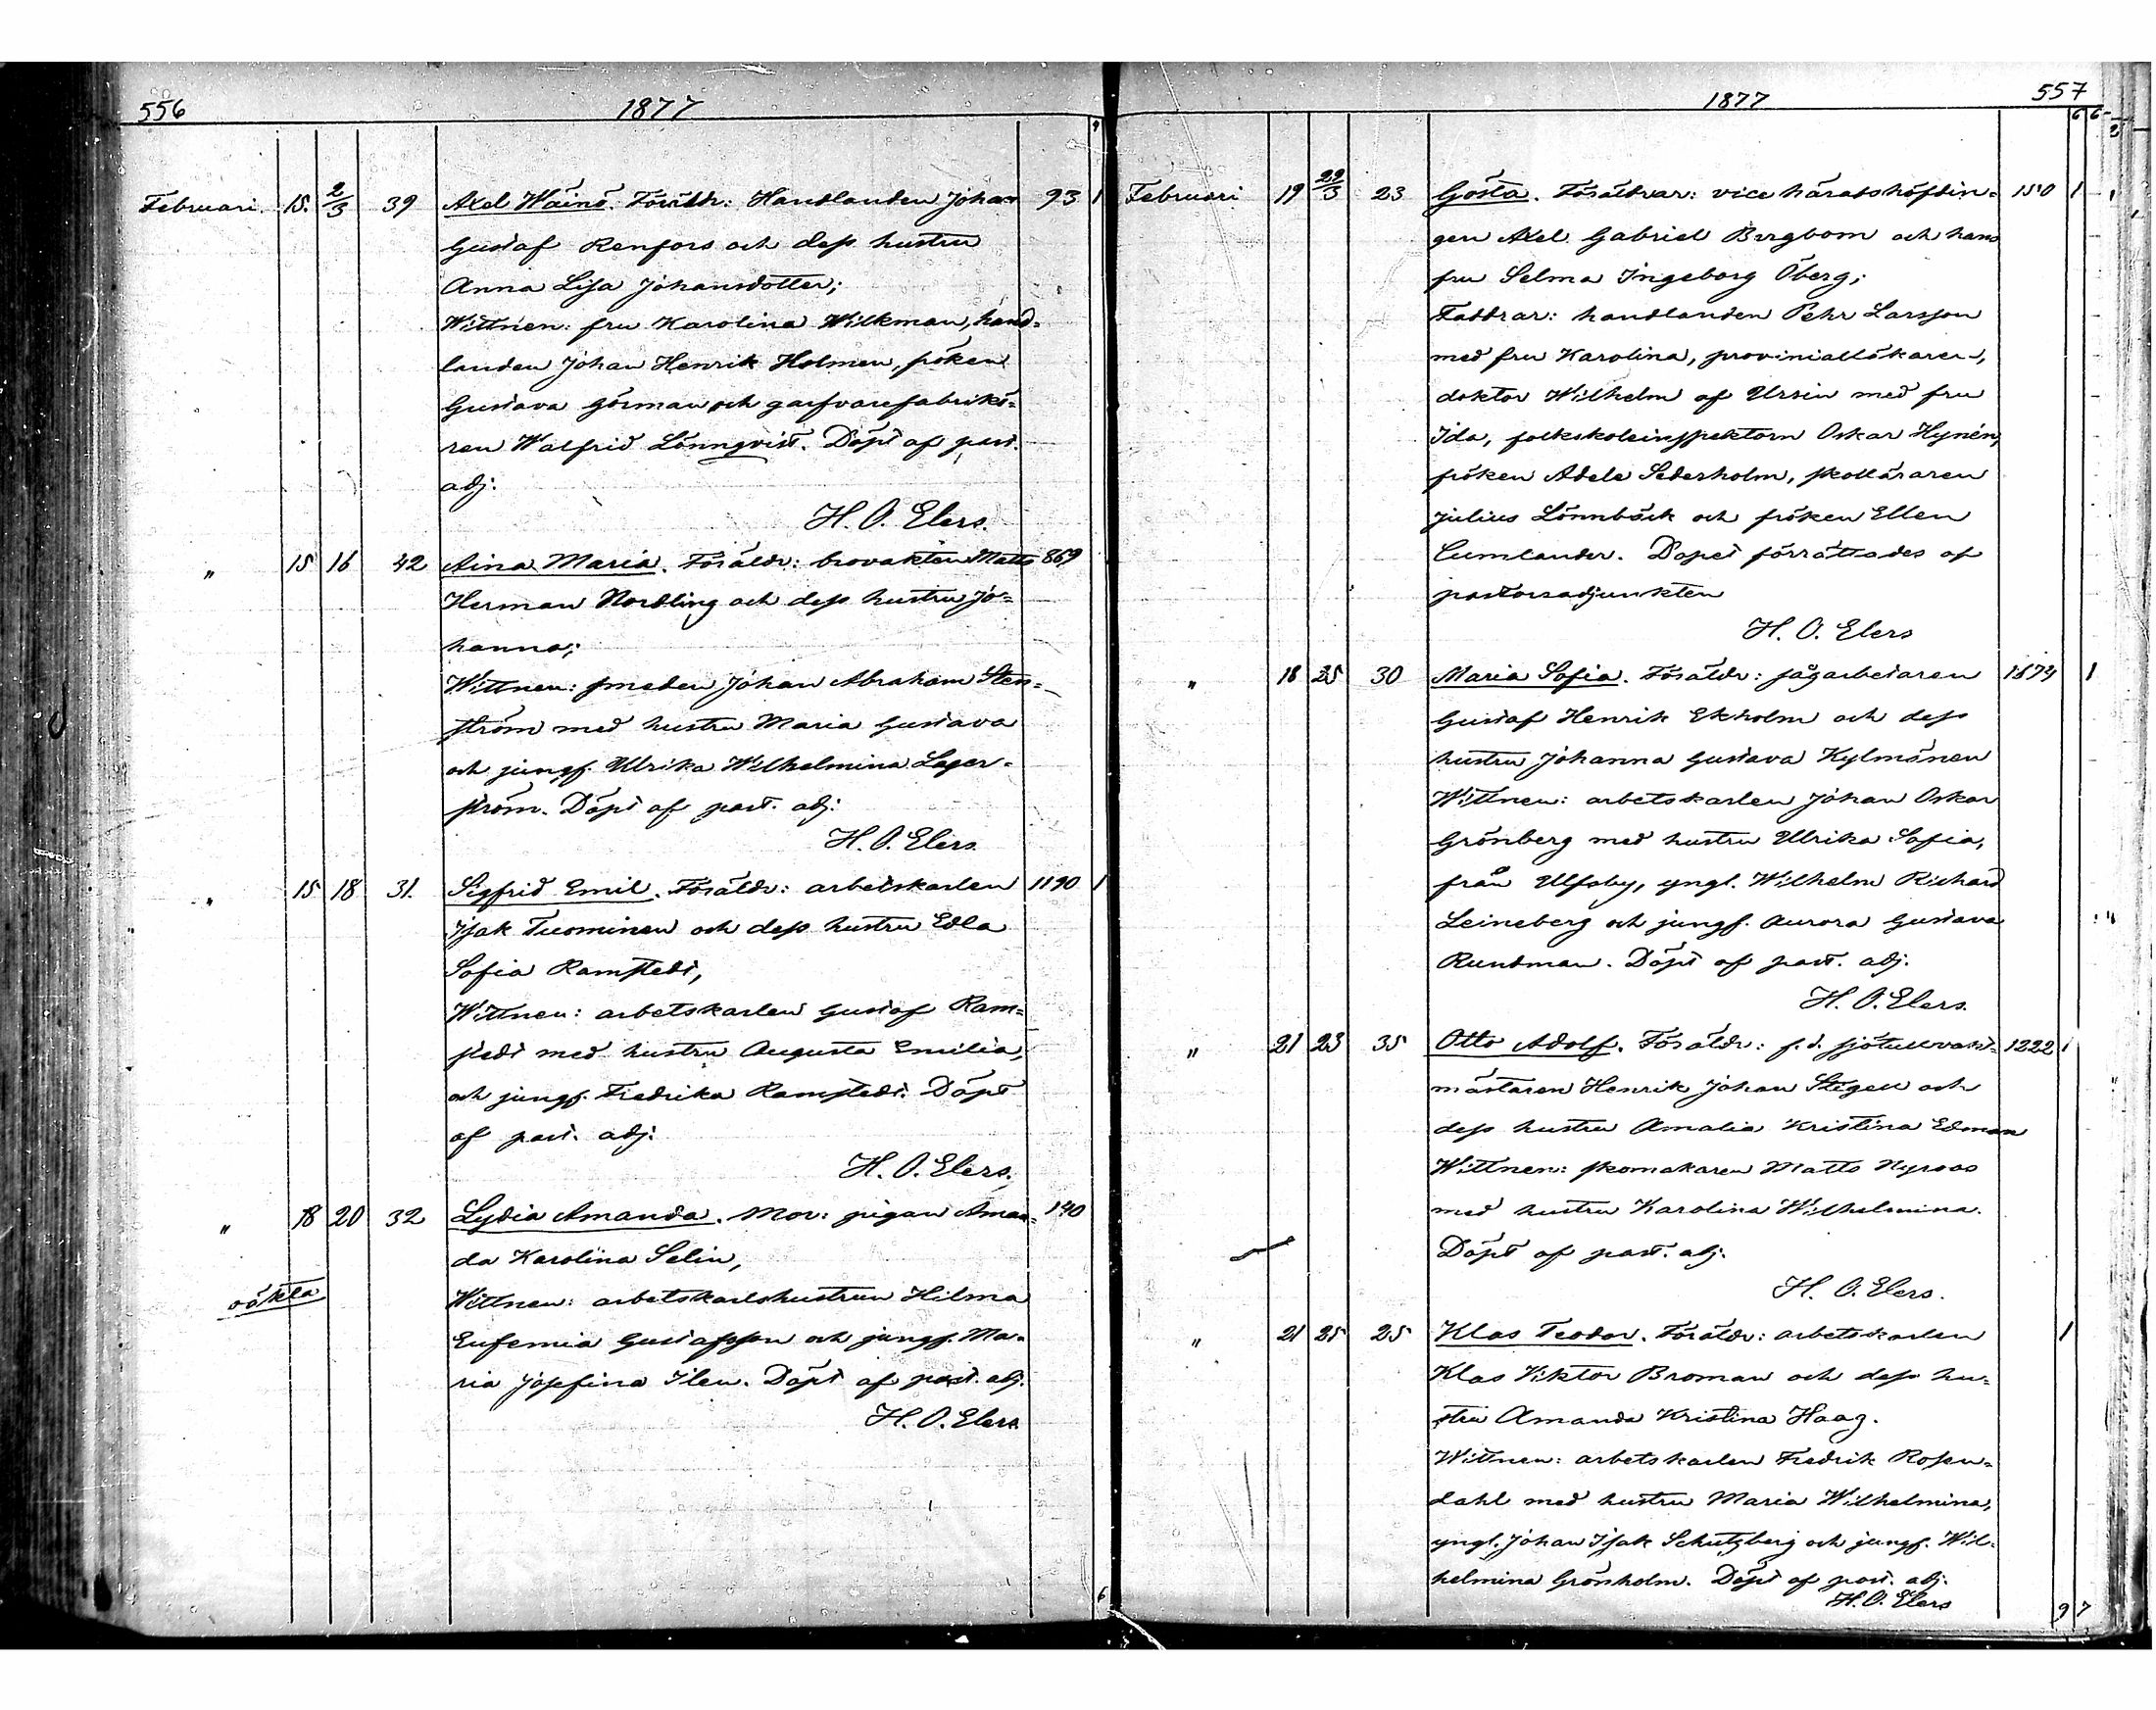 556 1877
Februari. 15. 2/3 39 Axel Wäinö. Föräldr: Handlanden Johan 93 1
Gustaf Renfors och dess hustru
Anna Lisa Johansdotter;
Wittnen: fru Karolina Wilkman, hand-
landen Johan Henrik Holmen, fröken
Gustava Görman och garfvarefabrikö-
ren Walfrid Lönnqvist. Döpt af past.
adj:
H. O. Elers.
" 15 16 42 Aina Maria. Föräldr: brovakten Matts 869
Herman Nordling och dess hustru Jo-
hanna;
Wittnen: smeden Johan Abraham Sten-
ström med hustru Maria Gustava
och jungf. Ulrika Wilhelmina Lager-
ström. Döpt af past. adj:
H. O. Elers
" 15 18 31. Sigfrid Emil. Föräldr: arbetskarlen 1190 1
Isak Tuominen och dess hustru Edla
Sofia Ramstedt,
Wittnen: arbetskarlen Gustaf Ram-
stedt med hustru Augusta Emilia,
och jungf. Fredrika Ramstedt. Döpt
af past. adj:
H. O. Elers.
" 18 20 32 Lydia Amanda. Mor: pigan Aman- 140
da Karolina Selin,
oäkta Wittnen: arbetskarlshustrun Hilma
Eufemia Gustafsson och jungf. Ma-
ria Josefina Ilen. Döpt af past. adj.
H. O. Elers
6
1877 557
Februari 19 29/3 23 Gösta. Föräldrar: vice häradshöfdin- 150 1
gen Axel Gabriel Bergbom och hans
fru Selma Ingeborg Öberg;
Faddrar: handlanden Pehr Larsson
med fru Karolina, provinialläkaren,
doktor Wilhelm af Ursin med fru
Ida, folkskoleinspektorn Oskar Hynén,
fröken Adele Sederholm, skolläraren
Julius Lönnbäck och fröken Ellen
Cumlander. Dopet förrättades af
pastorsadjunkten
H. O. Elers
" 18 25 30 Maria Sofia. Föräldr: sågarbetaren 1
Gustaf Henrik Ekholm och dess
hustru Johanna Gustava Kylmänen
Wittnen: arbetskarlen Johan Oskar
Grönberg med hustru Ulrika Sofia,
från Ulfsby, yngl. Wilhelm Richard
Leineberg och jungf. Aurora Gustava
Rundman. Döpt af past. adj.
H. O. Elers.
" 21 23 35 Otto Adolf. Föräldr: f.d. sjötullvakt- 1222 1
mästaren Henrik Johan Stigell och
dess hustru Amalia Kristina Edman
Wittnen: skomakaren Matts Nyroos
med hustru Karolina Wilhelmina.
Döpt af past. adj.
H. O. Elers.
" 21 25 25 Klas Teodor. Föräldr: arbetskarlen 1
Klas Viktor Broman och dess hu-
stru Amanda Kristina Haag.
Wittnen: arbetskarlen Fredrik Rosen-
dahl med hustru Maria Wilhelmina,
yngl. Johan Isak Schutzberg och jungf. Wil-
helmina Grönholm. Döpt af past. adj.
H. O. Elers
9 7